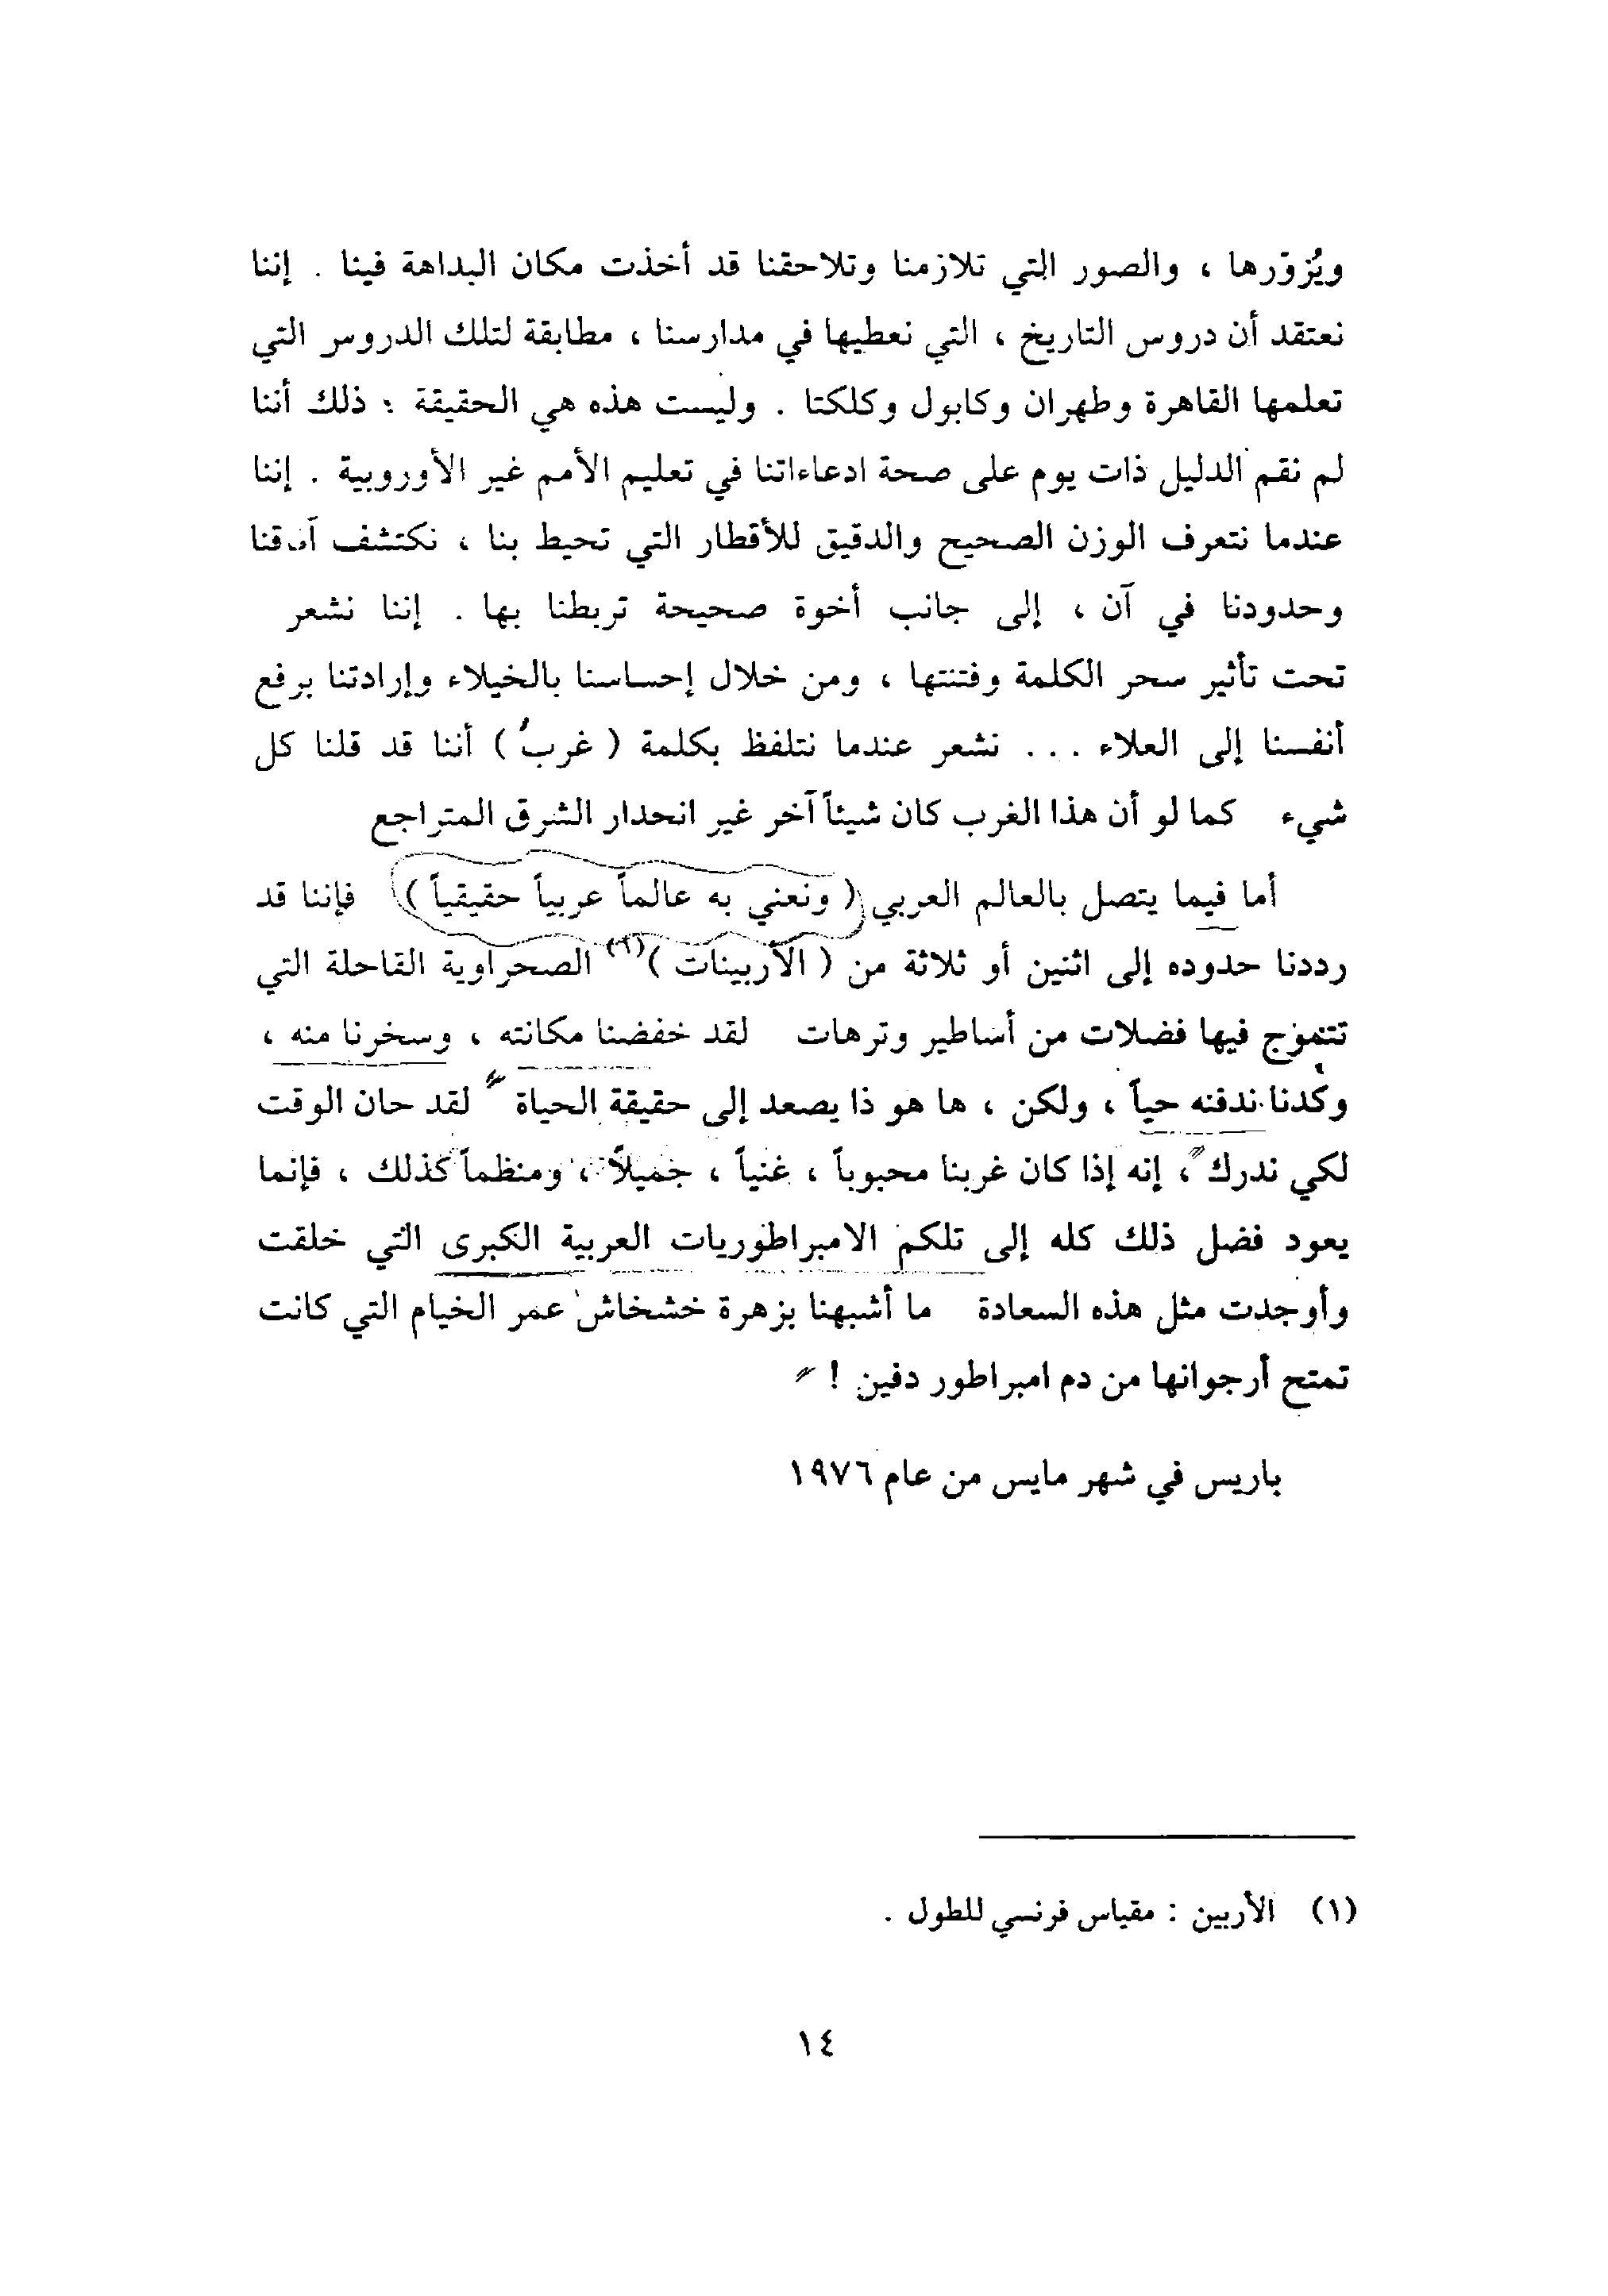 ويُزوّرها ، والصور التي تلازمنا وتلاحقنا قد أخذت مكان البداهة فينا . إننا
نعتقد أن دروس التاريخ ، التي نعطيها في مدارسنا ، مطابقة لتلك الدروس التي
تعلمها القاهرة وطهران وكابول وكلكتا . وليست هذه هي الحقيقة ؛ ذلك أننا
لم نقم الدليل ذات يوم على صحة ادعاءاتنا في تعليم الأمم غير الأوروبية . إننا
عندما نتعرف الوزن الصحيح والدقيق للأقطار التي تحيط بنا ، نكتشف آفاقنا
وحدودنا في آن ، إلى جانب أخوة صحيحة تربطنا بها . إننا نشعر
تحت تأثير سحر الكلمة وفتنتها ، ومن خلال إحساسنا بالخيلاء وإرادتنا برفع
أنفسنا إلى العلاء ... نشعر عندما نتلفظ بكلمة ( غرب ) أننا قد قلنا كل
شيء كما لو أن هذا الغرب كان شيئاً آخر غير انحدار الشرق المتراجع
أما فيما يتصل بالعالم العربي ( ونعني به عالماً عربياً حقيقياً ) فإننا قد
رددنا حدوده إلى اثنين أو ثلاثة من ( الأربينات )(١) الصحراوية القاحلة التي
تتموّج فيها فضلات من أساطير وترهات لقد خفضنا مكانته ، وسخرنا منه ،
وكدنا ندفنه حياً ، ولكن ، ها هو ذا يصعد إلى حقيقة الحياة لقد حان الوقت
لكي ندرك ، إنه إذا كان غربنا محبوباً ، غنياً ، جميلاً ، ومنظماً كذلك ، فإنما
يعود فضل ذلك كله إلى تلكم الامبراطوريات العربية الكبرى التي خلقت
وأوجدت مثل هذه السعادة ما أشبهنا بزهرة خشخاش عمر الخيام التي كانت
تمتح أرجوانها من دم امبراطور دفين !
باريس في شهر مايس من عام ١٩٧٦
(١) الأربين : مقياس فرنسي للطول .
١٤